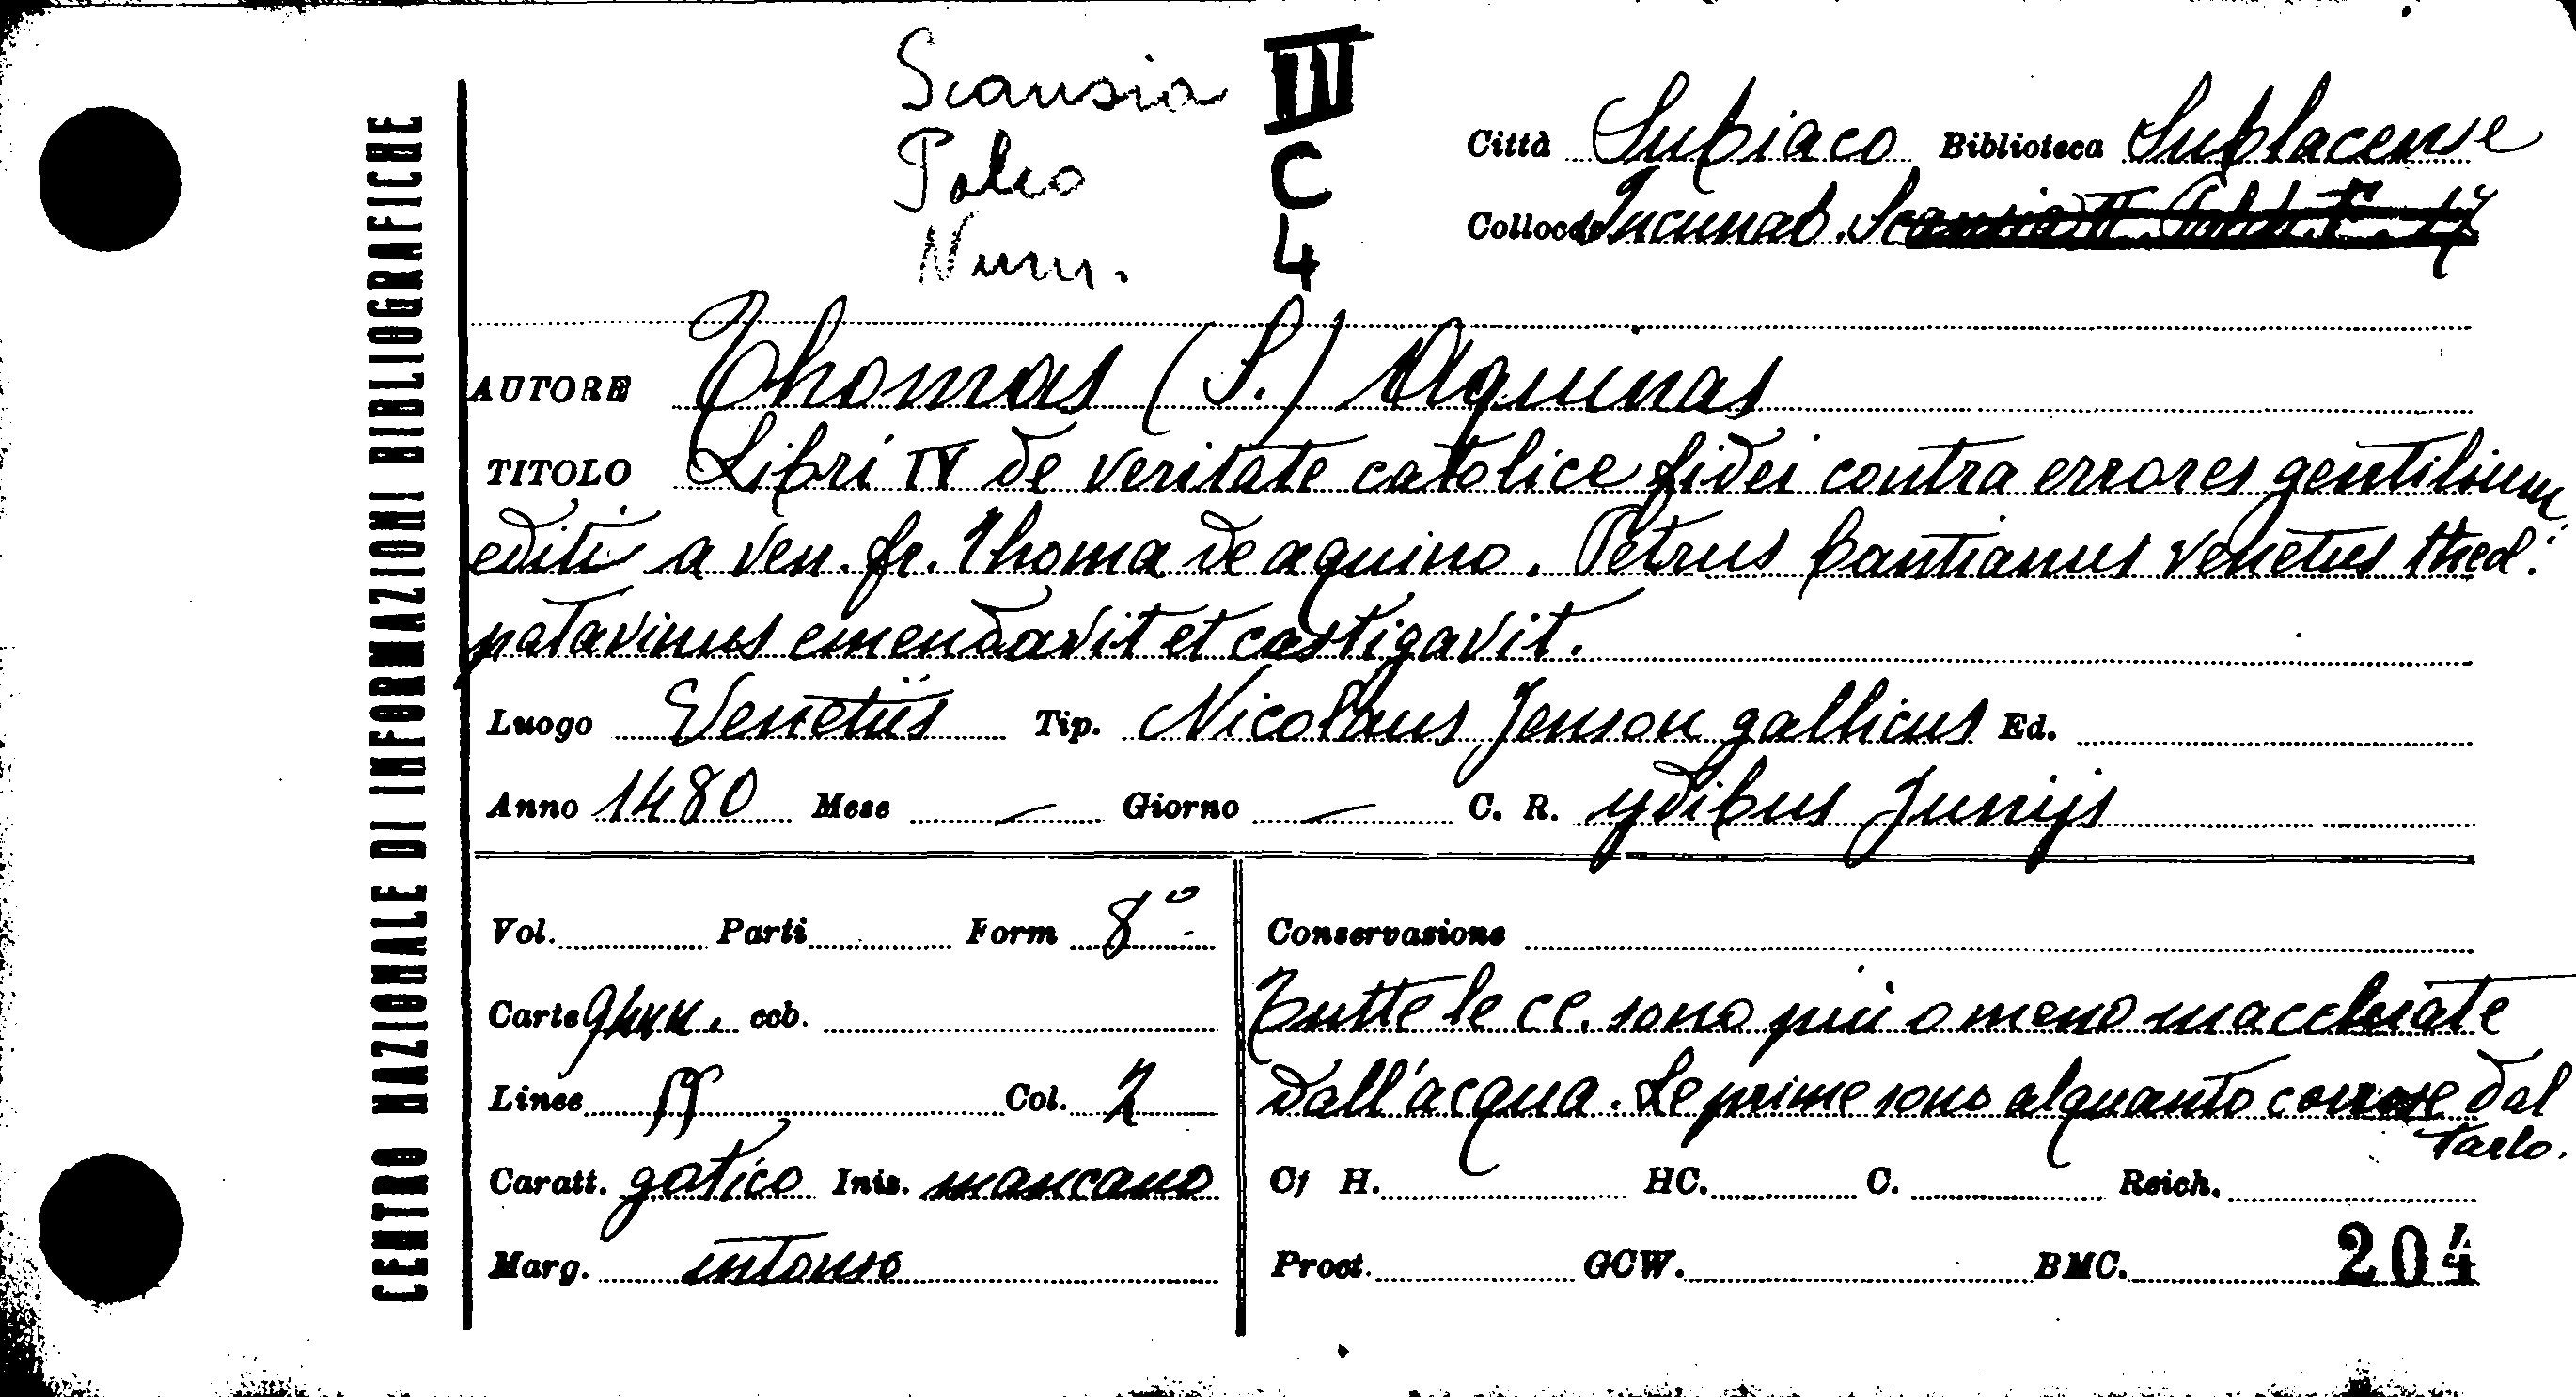 CENTRO NAZIONALE DI INFORMAZIONI BIBLIOGRAFICHE
Scansia IV
Palco C
Num. 4
Città Subiaco Biblioteca Sublacense
Collocaz Incunab. Scansia II
AUTORE Thomas (S.) Aquinas
TITOLO Libri IV de veritate catolice fidei contra errores gentilium
editi a ven. fr. Thoma de aquino. Petrus Cantianus venetus
patavinus emendavit et castigavit.
Luogo Venetiis Tip. Nicolaus Jenson gallicus Ed.
Anno 1480 Mese — Giorno — C. R. ydibus Junijs
Vol. Parti Form 8°
Carte nn. ccb.
Linee Col. 2
Caratt. gotico Iniz. mancano
Marg. intonso
Conservazione
Tutte le cc. sono più o meno macchiate
dall'acqua. Le prime sono alquanto corrose dal
tarlo.
Cf H. HC. C. Reich.
Proct. GCW. BMC. 204